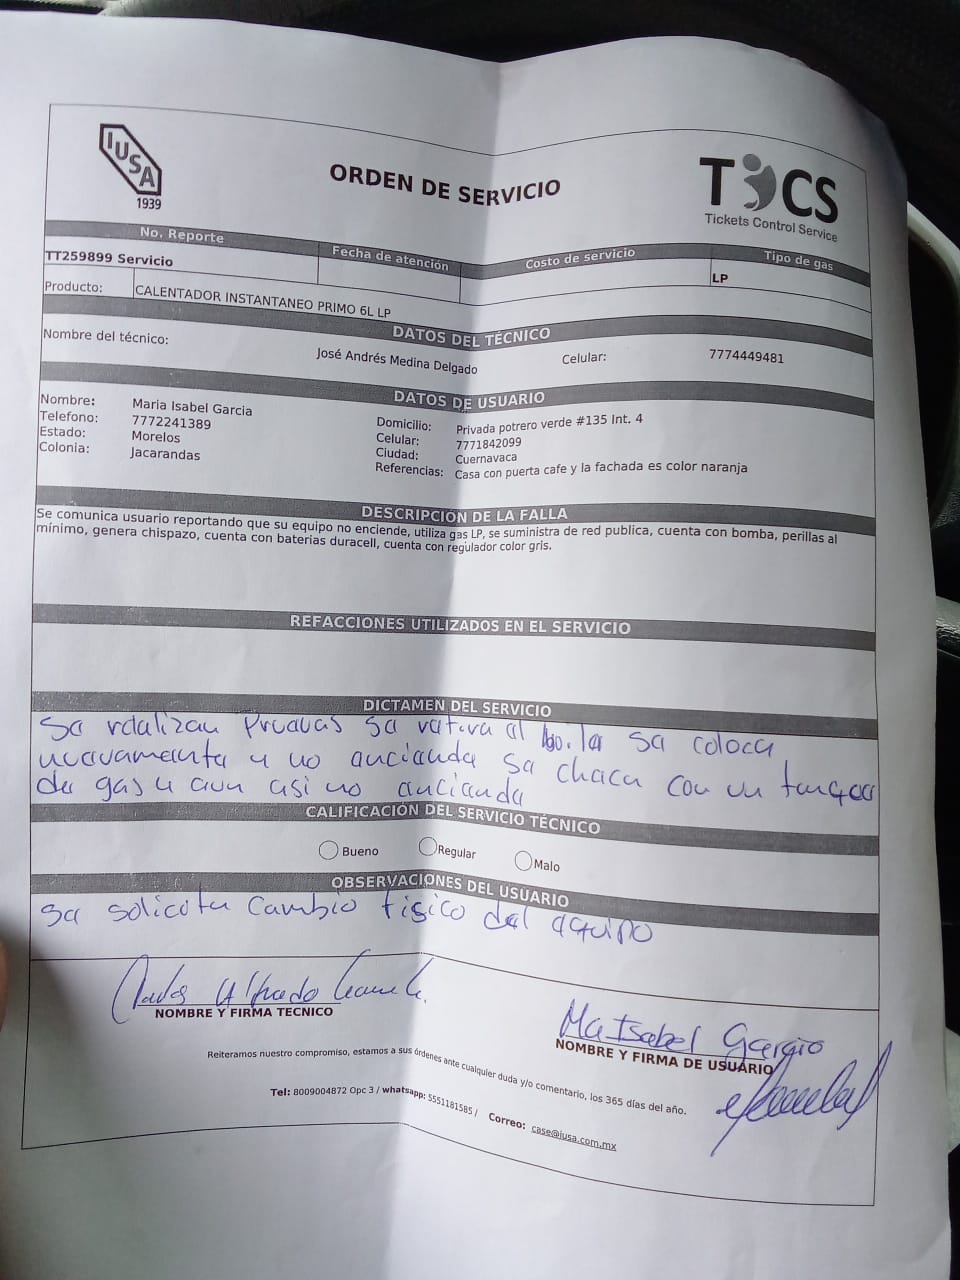 IUSA
1939
ORDEN DE SERVICIO
TCS
Tickets Control Service
No. Reporte
Fecha de atención
Costo de servicio
Tipo de gas
TT259899 Servicio
LP
Producto: CALENTADOR INSTANTANEO PRIMO 6L LP
DATOS DEL TÉCNICO
Nombre del técnico: José Andrés Medina Delgado Celular: 7774449481
DATOS DE USUARIO
Nombre: Maria Isabel Garcia
Telefono: 7772241389
Estado: Morelos
Colonia: Jacarandas
Domicilio: Privada potrero verde #135 Int. 4
Celular: 7771842099
Ciudad: Cuernavaca
Referencias: Casa con puerta cafe y la fachada es color naranja
DESCRIPCIÓN DE LA FALLA
Se comunica usuario reportando que su equipo no enciende, utiliza gas LP, se suministra de red publica, cuenta con bomba, perillas al
mínimo, genera chispazo, cuenta con baterias duracell, cuenta con regulador color gris.
REFACCIONES UTILIZADOS EN EL SERVICIO
DICTAMEN DEL SERVICIO
Sa rdalizan pruavas sa ratira al boiler sa coloca
nuavamanta y no ancianda sa chaca con un tanqaa
da gas y aun asi no ancianda
CALIFICACIÓN DEL SERVICIO TÉCNICO
Bueno
Regular
Malo
OBSERVACIONES DEL USUARIO
sa solicita cambio fisico dal aquipo
NOMBRE Y FIRMA TECNICO
Ma Isabel Garcia
NOMBRE Y FIRMA DE USUARIO
Reiteramos nuestro compromiso, estamos a sus órdenes ante cualquier duda y/o comentario, los 365 días del año.
Tel: 8009004872 Opc 3 / whatsapp: 5551181585 / Correo: case@iusa.com.mx